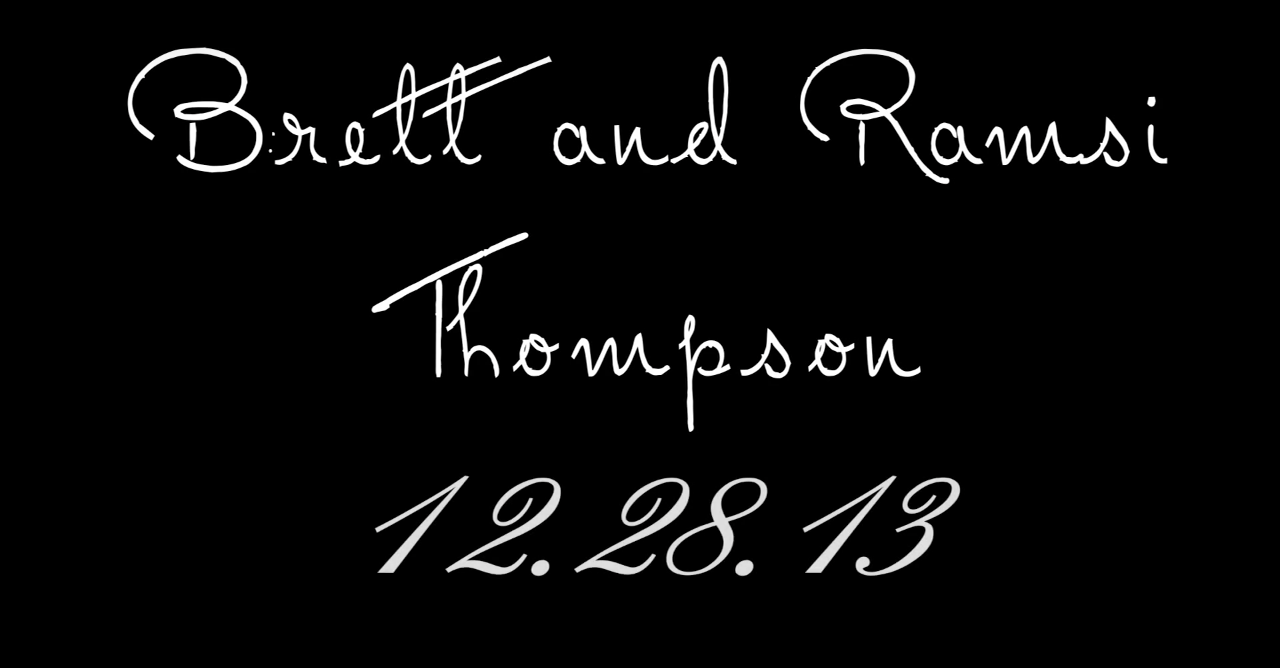 Brett and Ramsi
Thompson
12.28.13